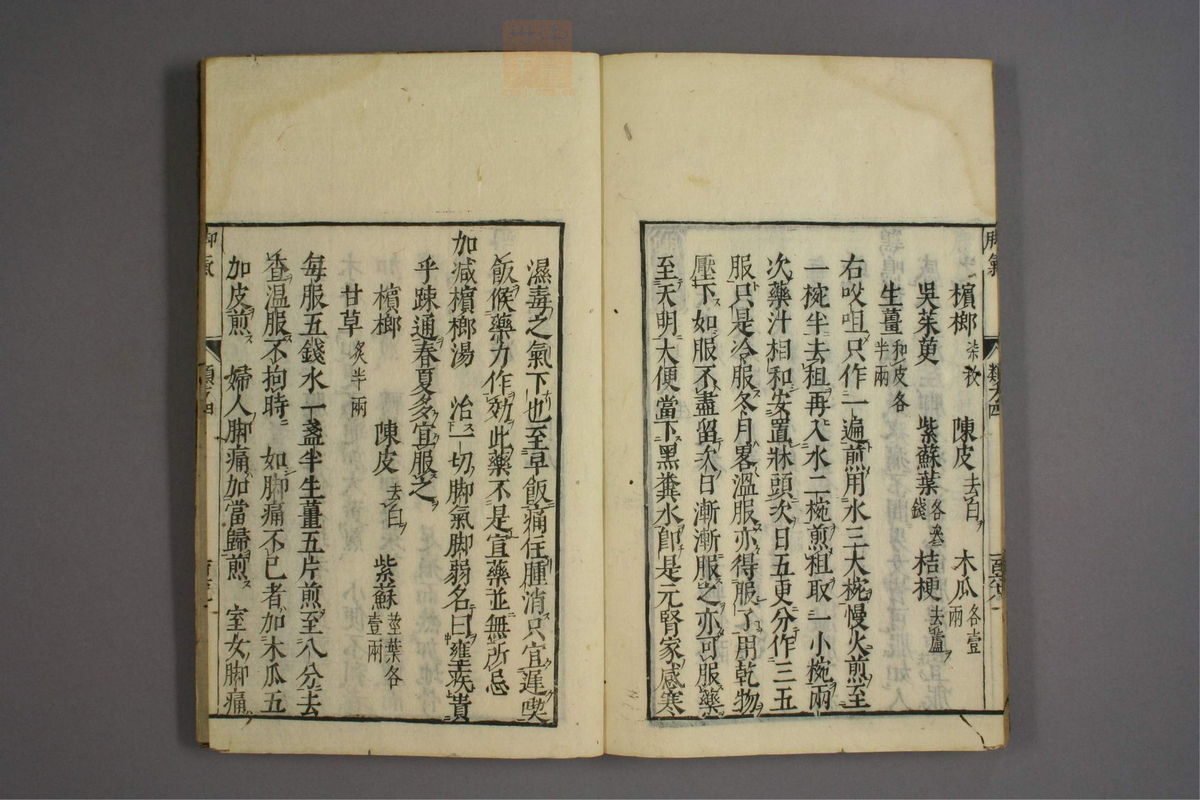 脚氣 類之四
檳榔柒枚 陳皮去白 木瓜各壹兩
吳茱萸 紫蘇葉各叁錢 桔梗去蘆
生薑和皮各半兩
右㕮咀只作一遍煎用水三大椀慢火煎至
一椀半去柤再入水二椀煎柤取一小椀兩
次藥汁相和安置牀頭次日五更分作三五
服只是冷服冬月畧溫服亦得服了用乾物
壓下如服不盡留次日漸漸服之亦可服藥
至天明大便當下黑糞水卽是元腎家感寒
濕毒之氣下也至早飯痛住腫消只宜遲喫
飯候藥力作効此藥不是宣藥並無所忌
加減檳榔湯 治一切脚氣脚弱名曰壅疾貴
乎疎通春夏多宜服之
檳榔 陳皮去白 紫蘇莖葉各壹兩
甘草炙半兩
每服五錢水一盞半生薑五片煎至八分去
柤溫服不拘時 如脚痛不已者加木瓜五
加皮煎 婦人脚痛加當歸煎 室女脚痛
脚氣 類之四